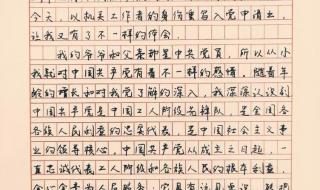 今天，以机关工作者的身份重留入党申请书，
让我又有了不一样的体会。
我的爷爷和父亲都是中共党员，所以从小
我就对中国共产党有着不一样的感情，随着年
龄的增长和对我党了解的深入，我深深认识到
中国共产党是中国工人阶级先锋队，是全国各
各族人民利益的忠实代表，是中国社会主义事
业的领导核心，中国共产党从成立之日起，一
直忠诚代表工人阶级和各族人民的根本利益，
全心全意为人民服务